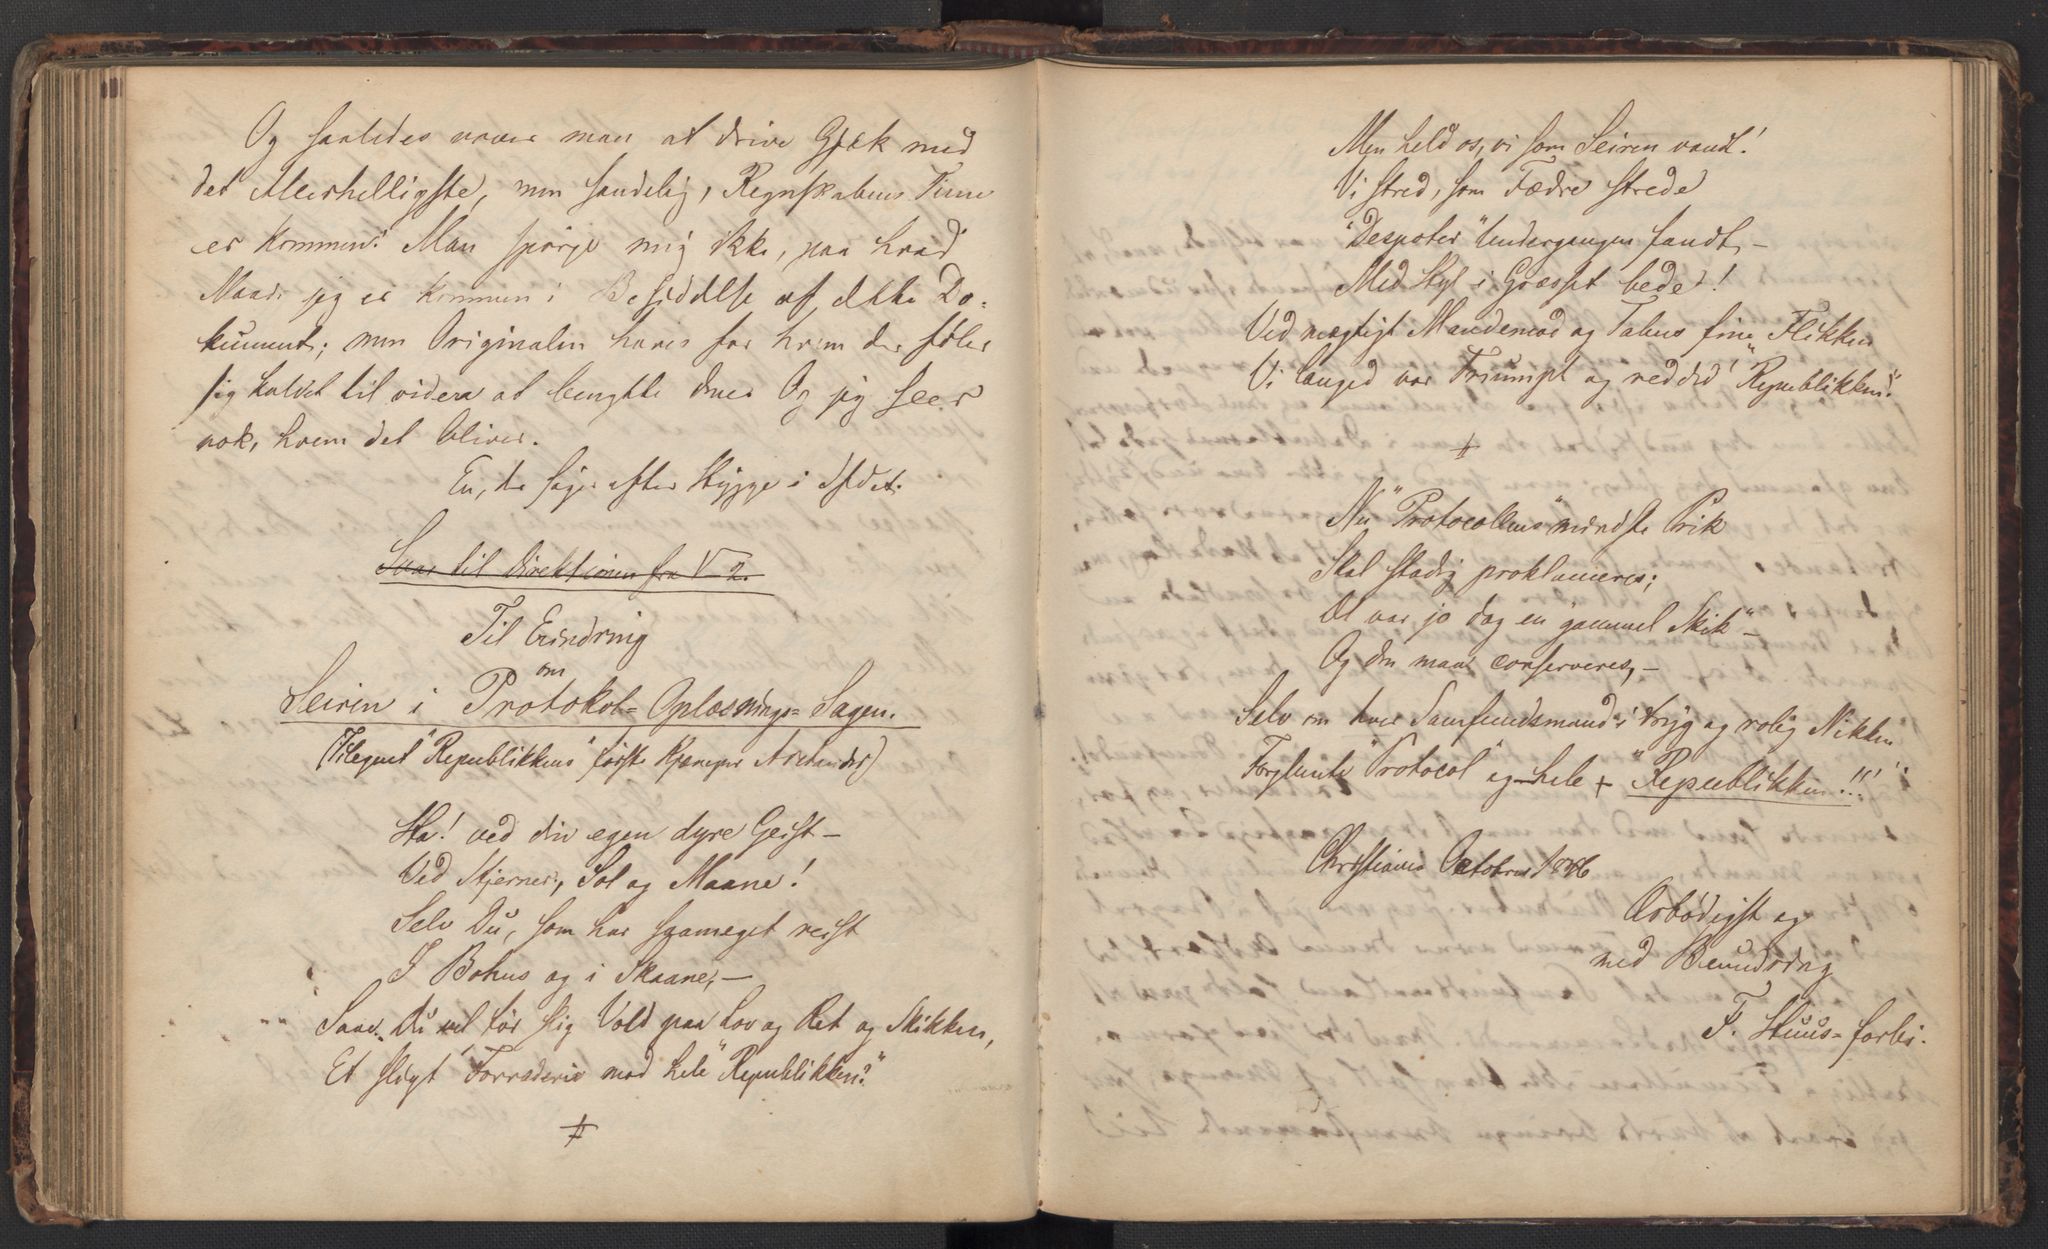 Og saaledes vover man at drive Gjæk med
det Allerhelligste, men sandelig, Regnskabens Time
er kommen! Man spørge mig ikke, paa hvad
Maade jeg er kommen i Besiddelse af dette Do-
kument; men Originalen haves for hvem der føler
sig kaldet til videre at benytte den. Og jeg seer
nok, hvem det bliver.
En, der søger efter Hygge i
Svar til Direktionen fra V-2.
Til Erindring
om
Seiren i Protokol= Oplæsnings= Sagen.
(Tilegnet "Republikkens" første Kjæmper
Ha! ved din egen dyre Geist —
Ved Stjerner, Sol og Maane!
Selv Du, som har saameget reist
I Bohus og i Skaane, —
Saae Du vel før slig Vold paa Lov og Ret og Skikken,
Et sligt Forræderie mod hele "Republikken?"
#
Men held os, vi som Seiren vandt!
Vi stred, som Fædre strede
"Despoter" Undergangen fandt, —
Med Hyl i Græsset bede!
Ved mægtigt Mandemod og Talens fine Flikken
Vi vor Triumph og redded' "Republikken!"
#
Nu "Protocollens" mindste Prik
Skal stadig proklameres;
Det var jo dog en "gammel Skik" —
Og den maa conserveres, —
Selv om hver Samfundsmand i tryg og rolig Nikken
Forglemte "Protocol" og hele + "Republikken!!!"
Christiania Octobris 1846
Ærbødigst og
med Beundring
F. Huus= forbi.